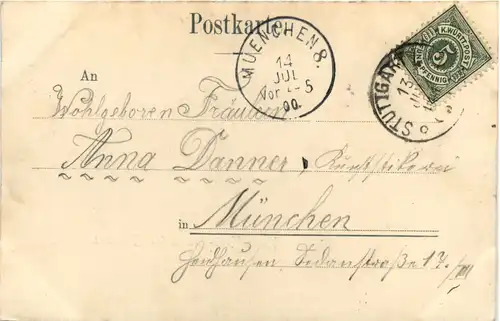 Postkarte
MUENCHEN 8.
14
JUL
Vor 4-5
00.
K. WÜRTT. POST
5
PFENNIG
STUTTGART
13
An
Wohlgeboren Fräulein
Anna Danner, Kunststickerei
in München
Haidhausen, Sedanstraße 17./III